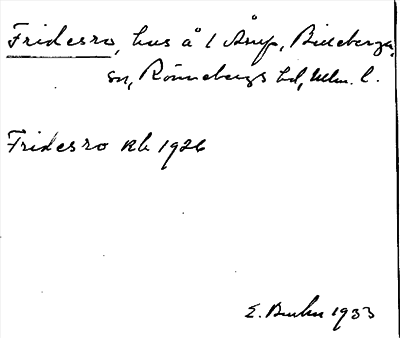 Fridesro, hus å 1 Årup, Billeberga
sn, Rönnebergs hd, Mlm. l.
Fridesro Rb 1926
E. 1933